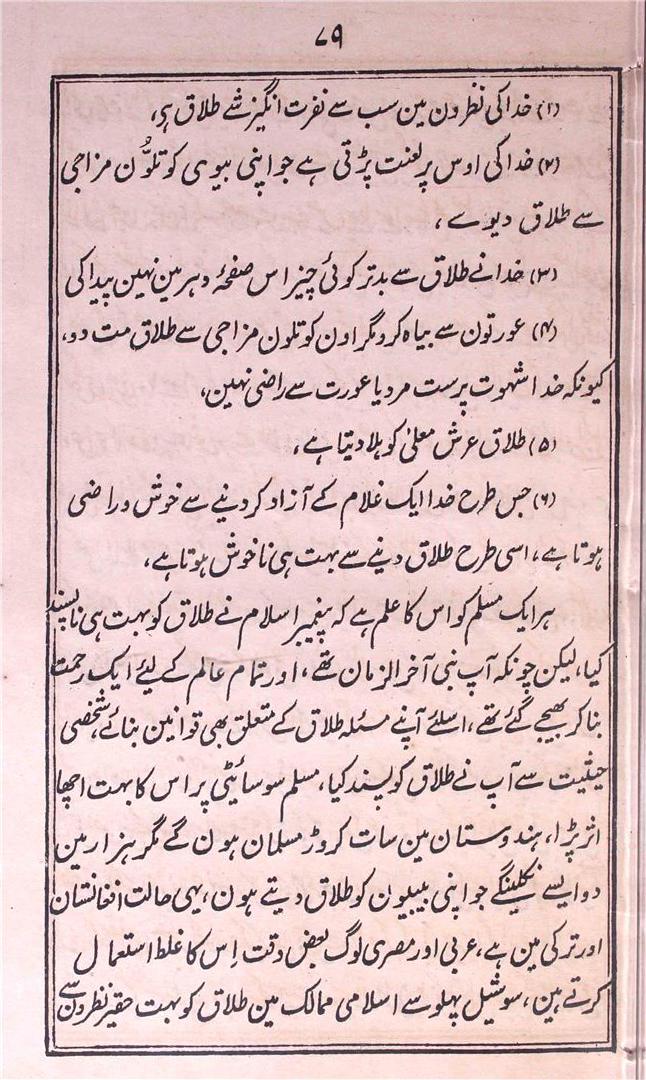 ۷۹
(۱) خدا کی نظرون مین سب سے نفرت انگیز شے طلاق ہی،
(۲) خدا کی اوس پر لعنت پڑتی ہے جو اپنی بیوی کو تلوُّن مزاجی
سے طلاق دیوے،
(۳) خدا نے طلاق سے بدتر کوئی چیز اس صفحۂ دہر مین نہین پیدا کی
(۴) عورتون سے بیاہ کرو مگر اون کو تلون مزاجی سے طلاق مت دو،
کیونکہ خدا شہوت پرست مرد یا عورت سے راضی نہین،
(۵) طلاق عرش معلیٰ کو ہلا دیتا ہے،
(۶) جس طرح خدا ایک غلام کے آزاد کر دینے سے خوش و راضی
ہوتا ہے، اسی طرح طلاق دینے سے بہت ہی ناخوش ہوتا ہے،
ہر ایک مسلم کو اس کا علم ہے کہ پیغمبر اسلام نے طلاق کو بہت ہی ناپسند
کیا، لیکن چونکہ آپ نبی آخر الزمان تھے، اور تمام عالم کے لیئے ایک رحمت
بنا کر بھیجے گئے تھے، اسلئے آپنے مسئلہ طلاق کے متعلق بھی قوانین بنائے، شخصی
حیثیت سے آپ نے طلاق کو پسند کیا، مسلم سوسائیٹی پر اس کا بہت اچھا
اثر پڑا، ہندوستان مین سات کروڑ مسلمان ہون گے مگر ہزار مین
دو ایسے نکلینگے جو اپنی بیبیون کو طلاق دیتے ہون، یہی حالت افغانستان
اور ترکی مین ہے، عربی اور مصری لوگ بعض وقت اِس کا غلط استعمال
کرتے ہین، سوشیل پہلو سے اسلامی ممالک مین طلاق کو بہت حقیر نظرون سے